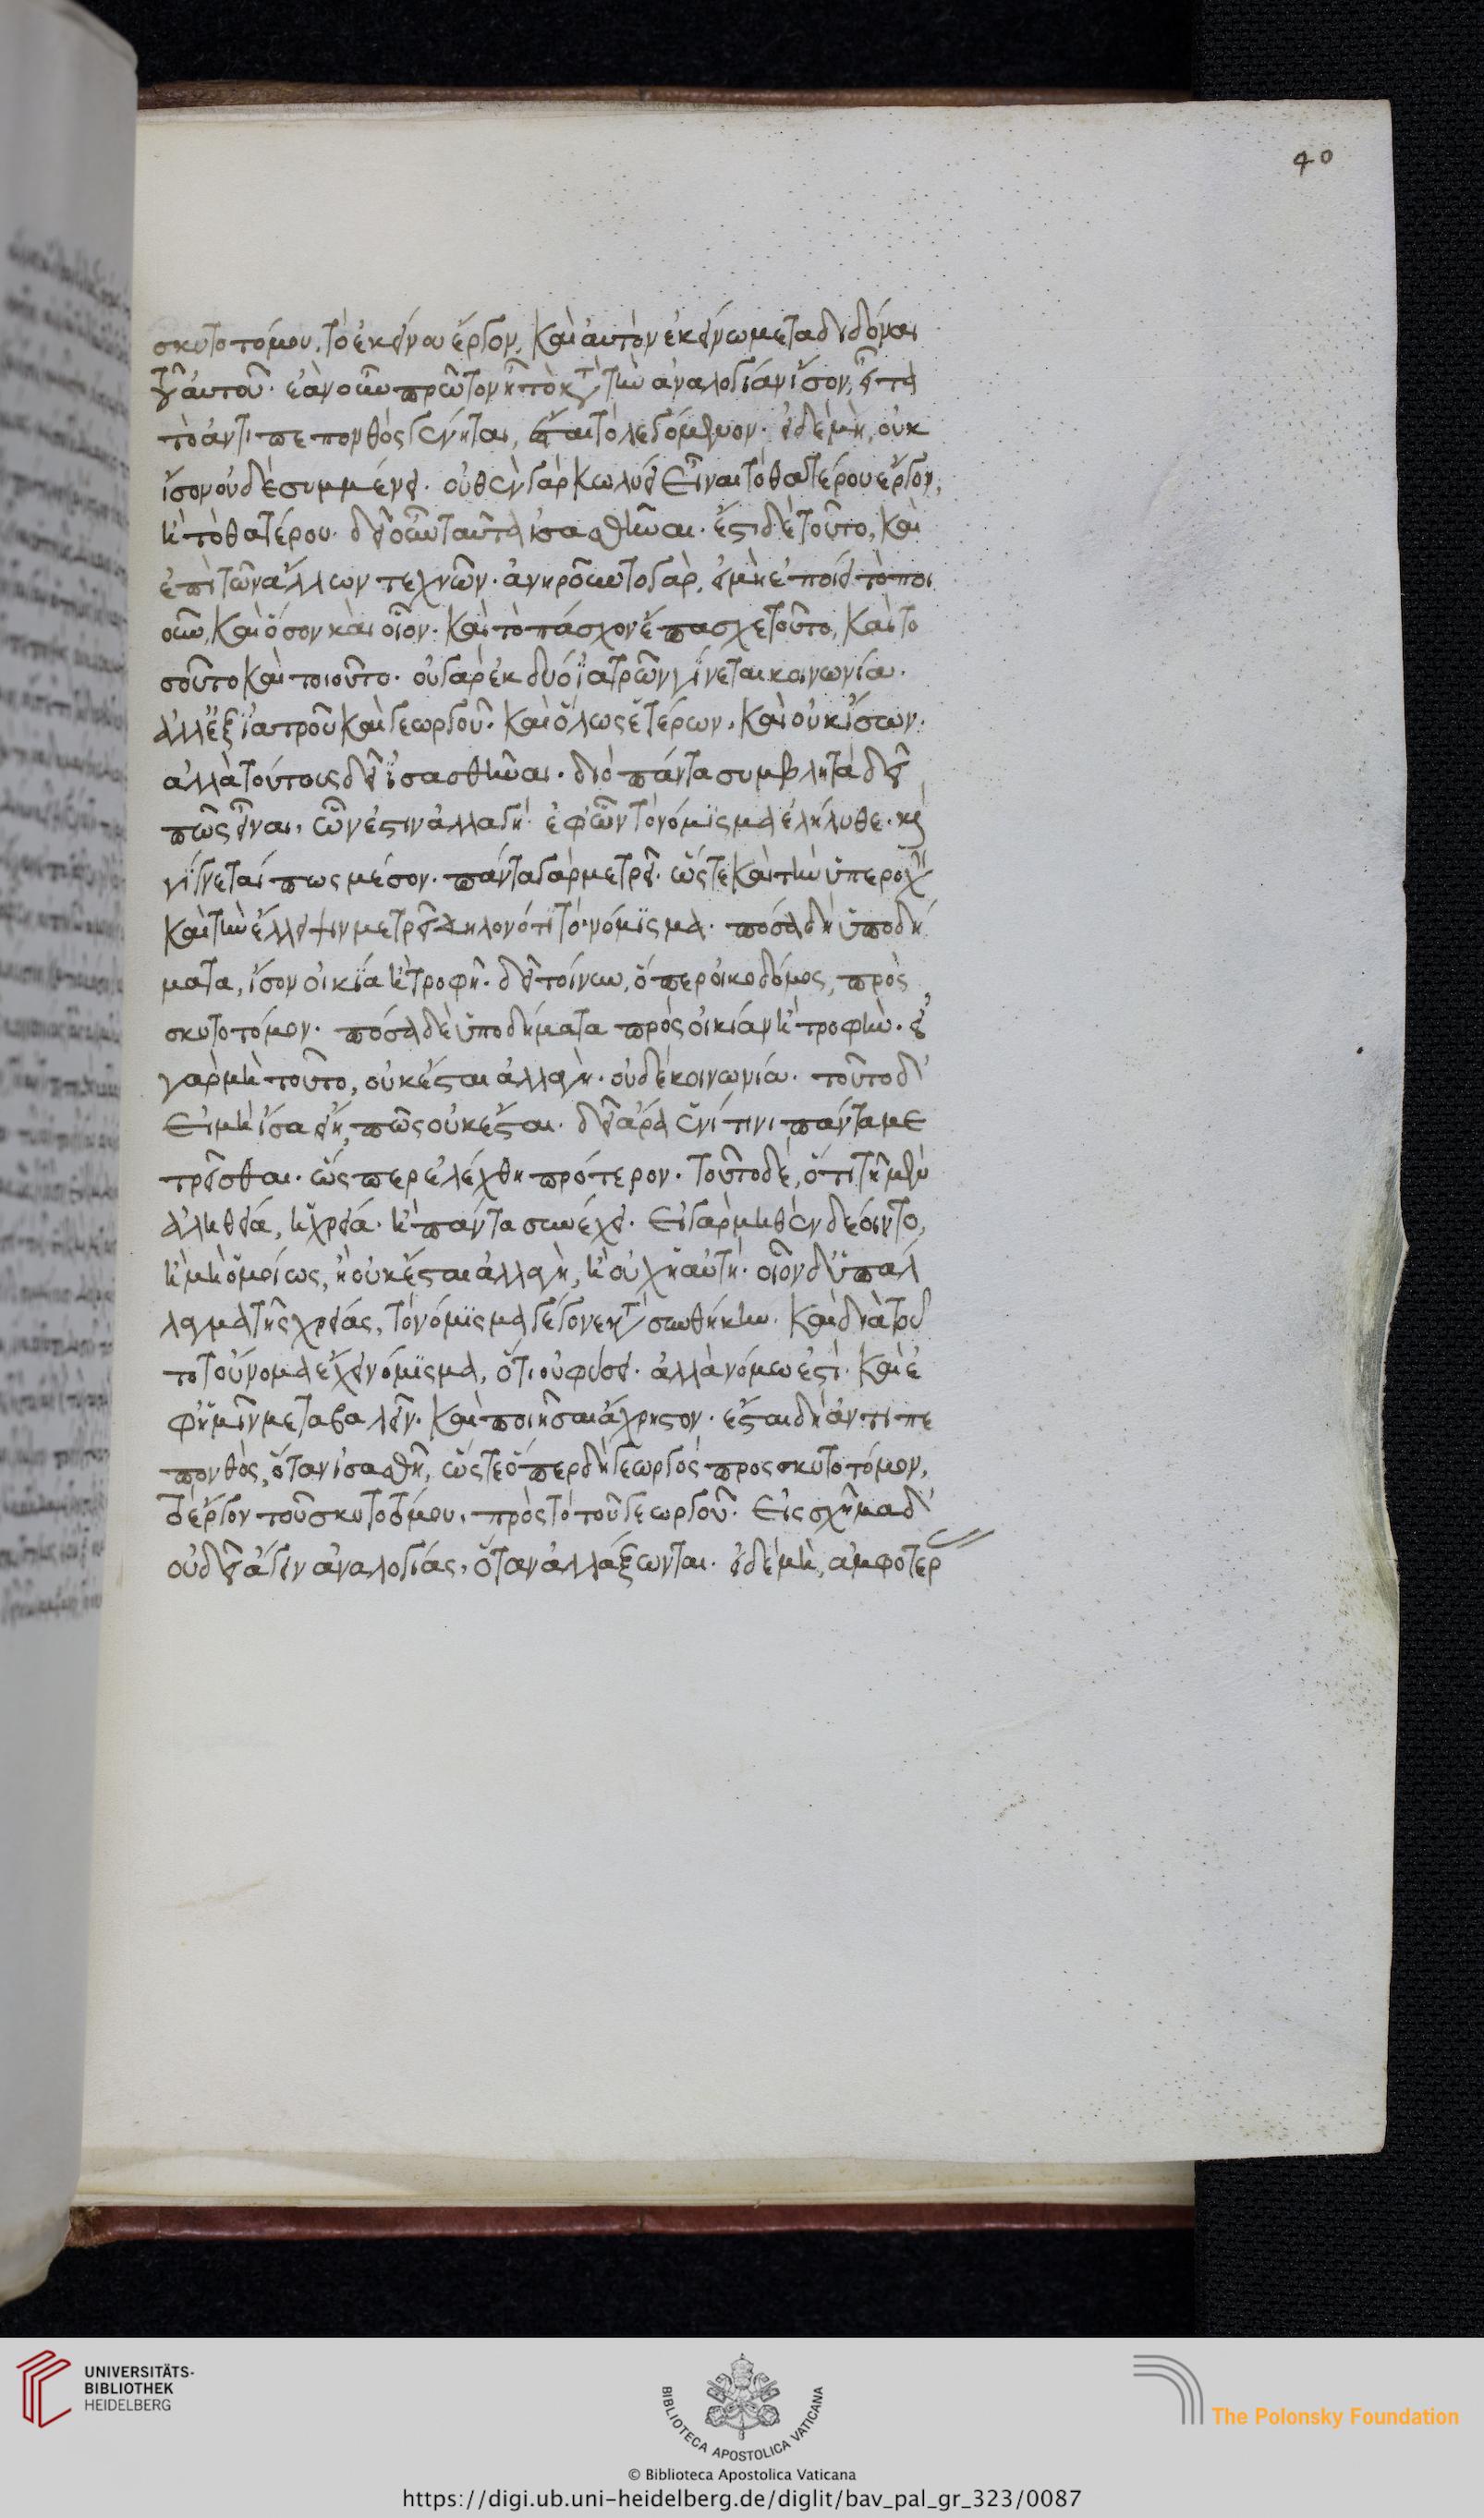 40
σκυτοτόμου, τὸ ἐκείνου ἔργον, καὶ αὐτὸν ἐκείνω μεταδιδόναι
τὸ αὐτοῦ. ἐὰν οὖν πρῶτον ἦ τὸ κατὰ τὴν ἀναλογίαν ἴσον, εἶτα
τὸ ἀντιπεπονθὸς γένηται, ἔσται τὸ λεγόμενον. εἰ δὲ μὴ, οὐκ
ἴσον οὐδὲ συμμένει. οὐθὲν γὰρ κωλύει εἶναι τὸ θατέρου ἔργον,
ἢ τὸ θατέρου. δεῖ οὖν ταῦτα ἰσασθῆναι. ἔστι δὲ τοῦτο, καὶ
ἐπὶ τῶν ἄλλων τεχνῶν. ἀνηροῦντο γὰρ, εἰ μὴ ἐποίει τὸ ποι
οῦν, καὶ ὅσον καὶ οἷον. καὶ τὸ πάσχον ἔπασχε τοῦτο, καὶ το
σοῦτο καὶ τοιοῦτο. οὐ γὰρ ἐκ δύο ἰατρῶν γίνεται κοινωνία.
ἀλλ' ἐξ ἰατροῦ καὶ γεωργοῦ. καὶ ὅλως ἑτέρων, καὶ οὐκ ἴσων.
ἀλλὰ τούτους δεῖ ἰσασθῆναι. διὸ πάντα συμβλητὰ δεῖ
πῶς εἶναι, ὧν ἐστιν ἀλλαγή. ἐφ' ὧν τὸ νόμισμα ἐλήλυθε. καὶ
γίνεταί πως μέσον. πάντα γὰρ μετρεῖ. ὥστε καὶ τὴν ὑπεροχὴν
καὶ τὴν ἔλλειψιν μετρεῖ δηλονότι τὸ νόμισμα. πόσα δὴ ὑποδή
ματα, ἴσον οἰκία ἢ τροφῆ. δεῖ τοίνυν, ὅπερ οἰκοδόμος, πρὸς
σκυτοτόμον. πόσα δὲ ὑποδήματα πρὸς οἰκίαν ἢ τροφὴν. εἰ
γὰρ μὴ τοῦτο, οὐκ ἔσται ἀλλαγὴ. οὐδὲ κοινωνία. τοῦτο δ'
εἰ μὴ ἴσα εἴη, πῶς οὐκ ἔσται. δεῖ ἄρα ἑνί τινι πάντα με
τρεῖσθαι. ὥσπερ ἐλέχθη πρότερον. τοῦτο δὲ, ὅτι τῆ μὲν
ἀληθεία, ἡ χρεία. ἣ πάντα συνέχει. εἰ γὰρ μηθὲν δέοιντο,
ἢ μὴ ὁμοίως, ἢ οὐκ ἔσται ἀλλαγὴ, ἢ οὐχ ἡ αὐτή. οἷον δ' ὑπάλ
λαγμα τῆς χρείας, τὸ νόμισμα γέγονε κατὰ συνθήκην. καὶ διὰ τοῦ
το τοὔνομα ἔχει νόμισμα, ὅτι οὐ φύσει. ἀλλὰ νόμω ἐστὶ. καὶ ἐ
φ' ἡμῖν μεταβαλεῖν. καὶ ποιῆσαι ἄχρηστον. ἔσται δὴ ἀντιπε
πονθὸς, ὅταν ἰσασθῆ, ὥστε ὅπερ δὴ γεωργὸς προς σκυτοτόμον,
τὸ ἔργον τοῦ σκυτοτόμου, πρὸς τὸ τοῦ γεωργοῦ. εἰς σχῆμα δ'
οὐ δεῖ ἄγειν ἀναλογίας, ὅταν ἀλλάξωνται. εἰ δὲ μὴ, ἀμφότερ
UNIVERSITÄTS-
BIBLIOTHEK
HEIDELBERG
BIBLIOTECA APOSTOLICA VATICANA
The Polonsky Foundation
© Biblioteca Apostolica Vaticana
https://digi.ub.uni-heidelberg.de/diglit/bav_pal_gr_323/0087